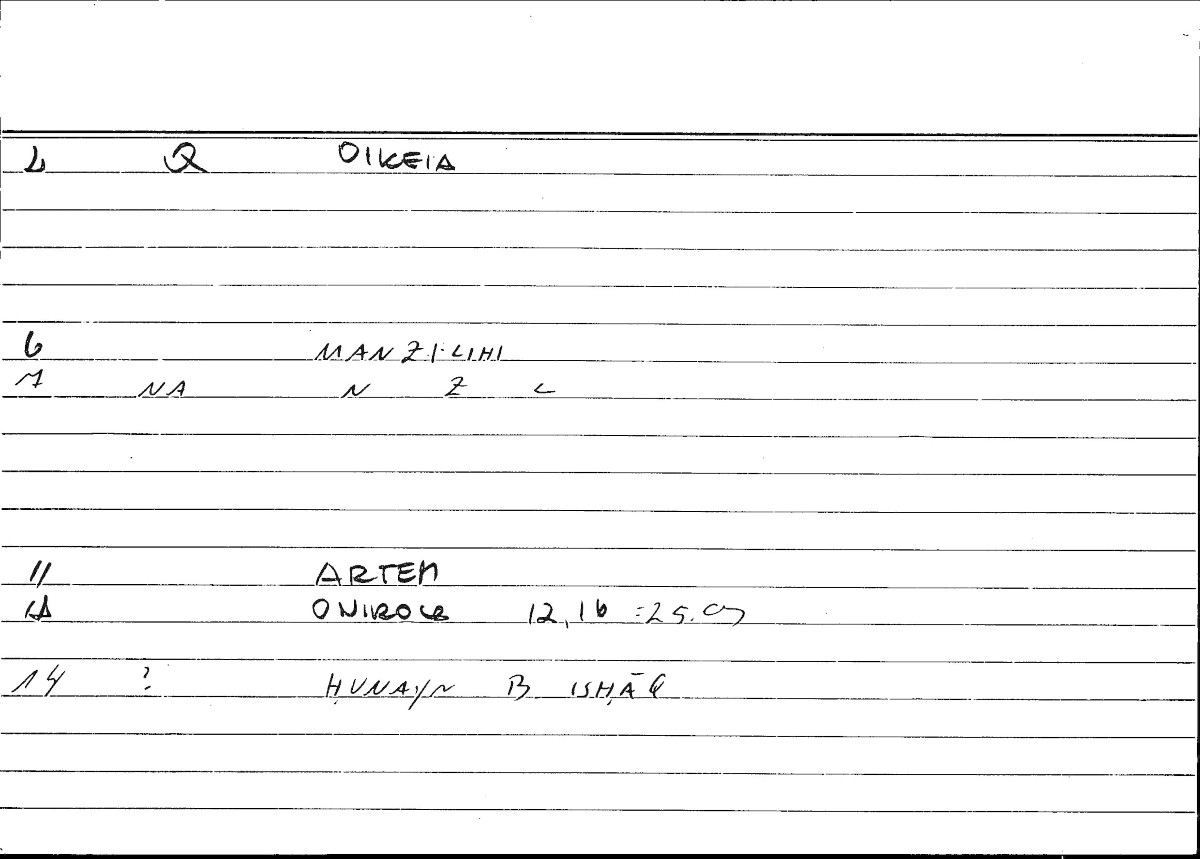 Q OIKEIA
6 MANZILIHI
7 NA N Z L
11 ARTEM
ONIROCR 12,16 =25.
14 ? ḤUNAYN B ISḤĀQ